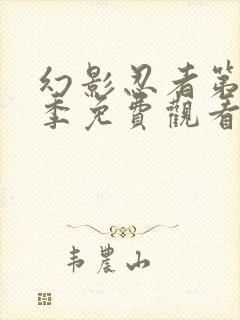 幻影忍者第
季免費觀看
韦農山